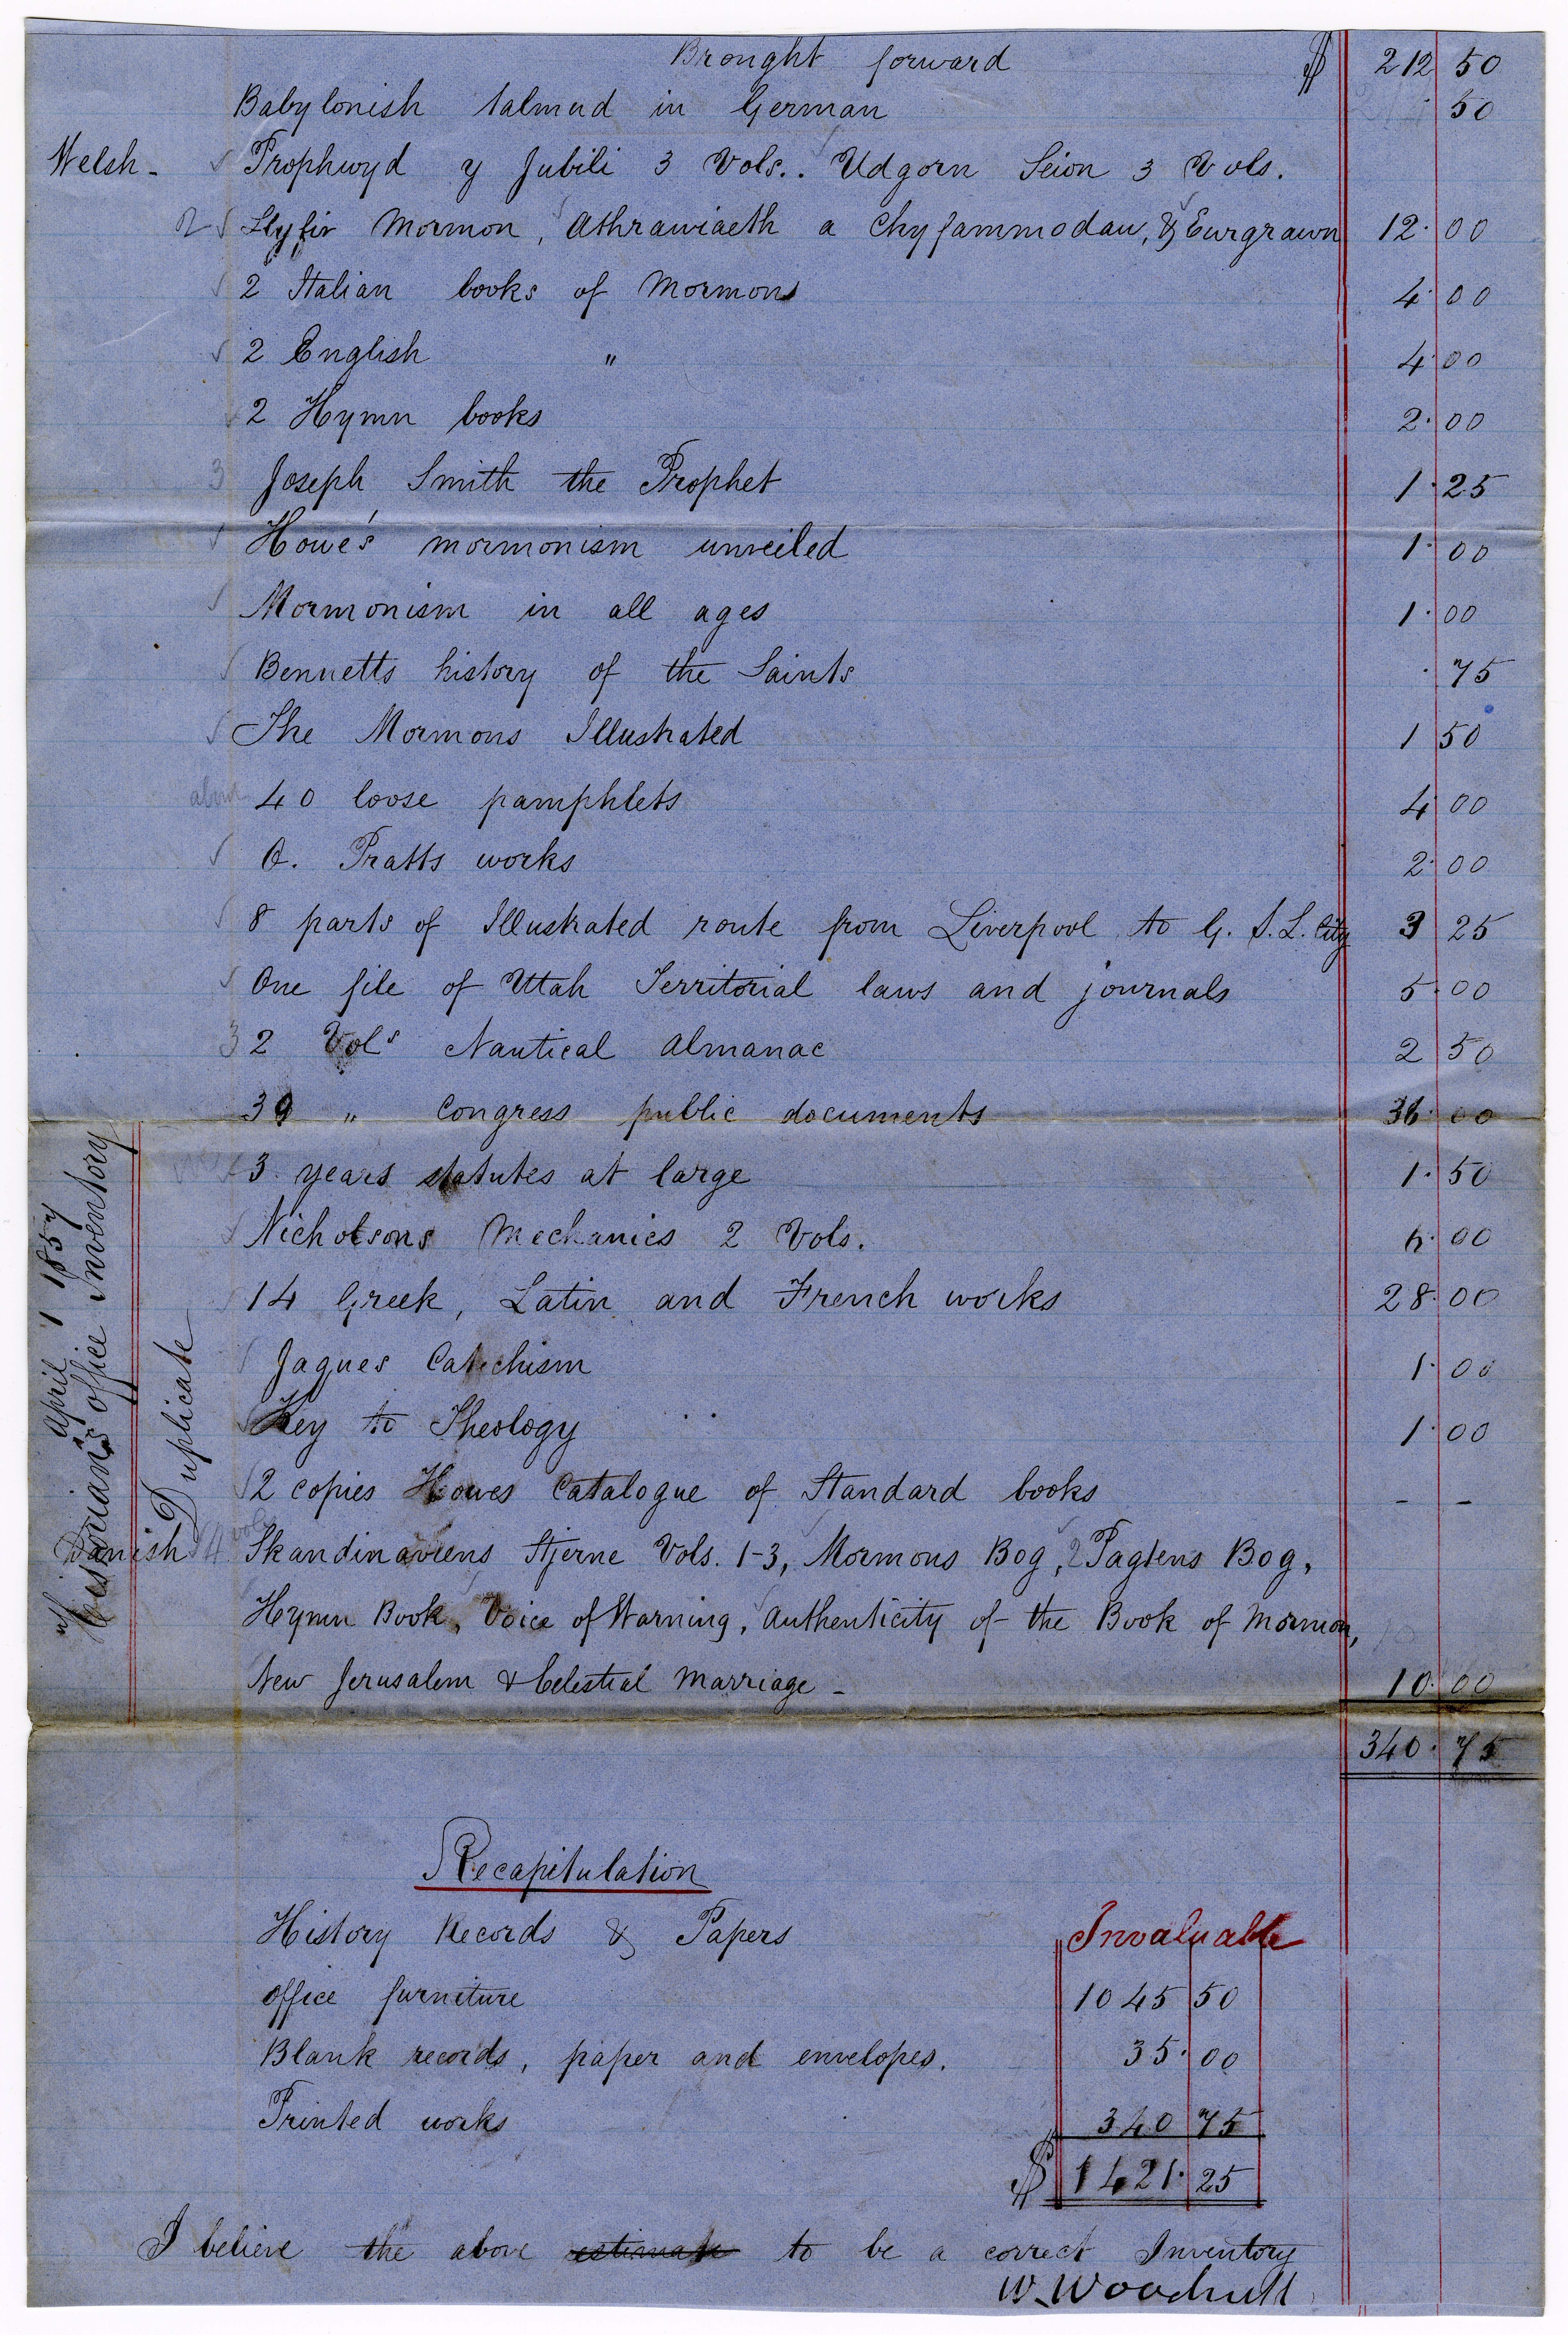 Brought forward $ 212 50
Babylonish talmud in German . 50
Welsh - Prophwyd y Jubili 3 Vols.. Udgorn Seion 3 Vols.
2 Llyfir Mormon, Athrawiaeth a Chyfammodau, & Eurgrawn 12. 00
2 Italian books of Mormons 4. 00
2 English " 4. 00
2 Hymn books 2. 00
3 Joseph Smith the Prophet 1. 25
Howe's mormonism unveiled 1. 00
Mormonism in all ages 1. 00
Bennetts history of the Saints . 75
The Mormons Illustrated 1 50
about 40 loose pamphlets 4. 00
O. Pratts works 2. 00
8 parts of Illustrated route from Liverpool to G. S. L. City 3 25
One file of Utah Territorial laws and journals 5. 00
3 2 Vols Nautical almanac 2 50
39 " Congress public documents 36. 00
3 years statutes at large 1. 50
Nicholsons Mechanics 2 Vols. 6. 00
14 Greek, Latin and French works 28. 00
Jaques Catechism 1. 00
Key to Theology 1. 00
2 copies Howes Catalogue of Standard books - -
Danish 4 vols Skandinaviens Stjerne Vols. 1-3, Mormons Bog, 2 Pagtens Bog,
Hymn Book, Voice of Warning, Authenticity of the Book of Mormon,
New Jerusalem & Celestial Marriage - 10. 00
340. 75
April 1 1857
Historian's office Inventory
Duplicate
Recapitulation
History Records & Papers Invaluable
office furniture 1045 50
Blank records, paper and envelopes. 35. 00
Printed works 340 75
$ 1421. 25
I believe the above estimate to be a correct Inventory
W. Woodruff